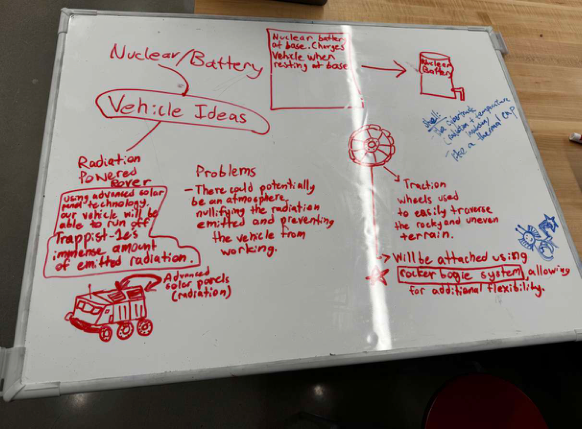 Nuclear/Battery
Vehicle Ideas
Nuclear battery
at base. Charges
Vehicle when
resting at base
Nuclear
Battery
Radiation
Powered
Rover
Using advanced solar
technology,
our vehicle will be
able to run off
Trappist-1e's
immense amount
of emitted radiation.
Advanced
solar panels
(radiation)
Problems
- There could potentially
be an atmosphere,
nullifying the radiation
emitted and preventing
the vehicle from
working.
Traction
wheels used
to easily traverse
the rocky and uneven
terrain.
Will be attached using
rocker bogie system, allowing
for additional flexibility.
temperature
a thermal